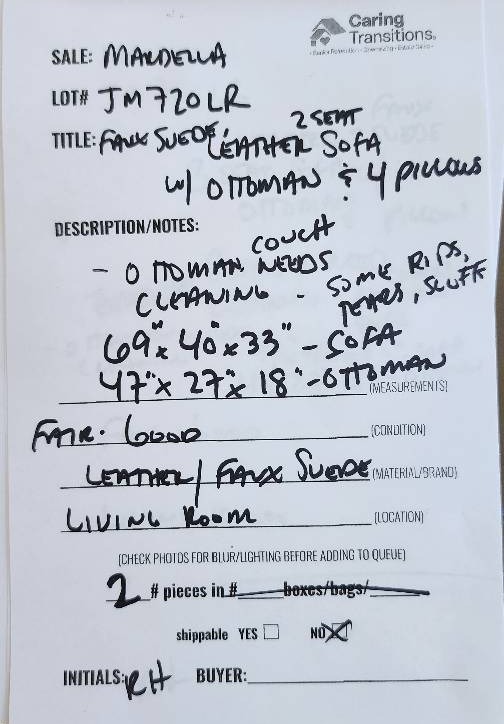 Caring
Transitions®
SALE: MARDELLA
LOT# JM720LR
TITLE: FAUX SUEDE, LEATHER 2 SEAT SOFA
W/ OTTOMAN & 4 PILLOWS
DESCRIPTION/NOTES:
- OTTOMAN, COUCH NEEDS
CLEANING - SOME RIPS,
TEARS, SCUFF
69" x 40" x 33" - SOFA
47" x 27" x 18" - OTTOMAN
(MEASUREMENTS)
FAIR. GOOD (CONDITION)
LEATHER / FAUX SUEDE (MATERIAL/BRAND)
LIVING ROOM (LOCATION)
(CHECK PHOTOS FOR BLUR/LIGHTING BEFORE ADDING TO QUEUE)
2 # pieces in # boxes/bags/
shippable YES NO
INITIALS: RH BUYER: